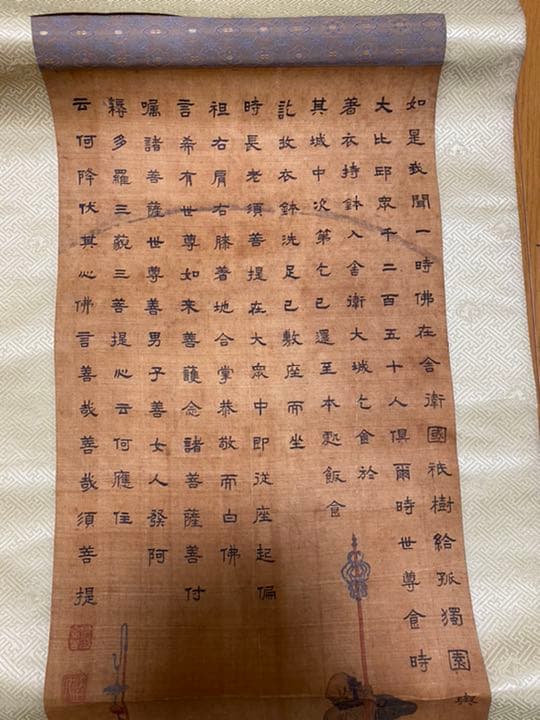 如是我聞一時佛在舍衛國祇樹給孤獨園與
大比邱眾千二百五十人俱爾時世尊食時
著衣持鉢入舍衛大城乞食於
其城中次第乞已還至本處飯食
訖收衣鉢洗足已敷座而坐
時長老須菩提在大眾中即從座起偏
袒右肩右膝著地合掌恭敬而白佛
言希有世尊如來善護念諸菩薩善付
囑諸菩薩世尊善男子善女人發阿
耨多羅三藐三菩提心云何應住
云何降伏其心佛言善哉善哉須菩提